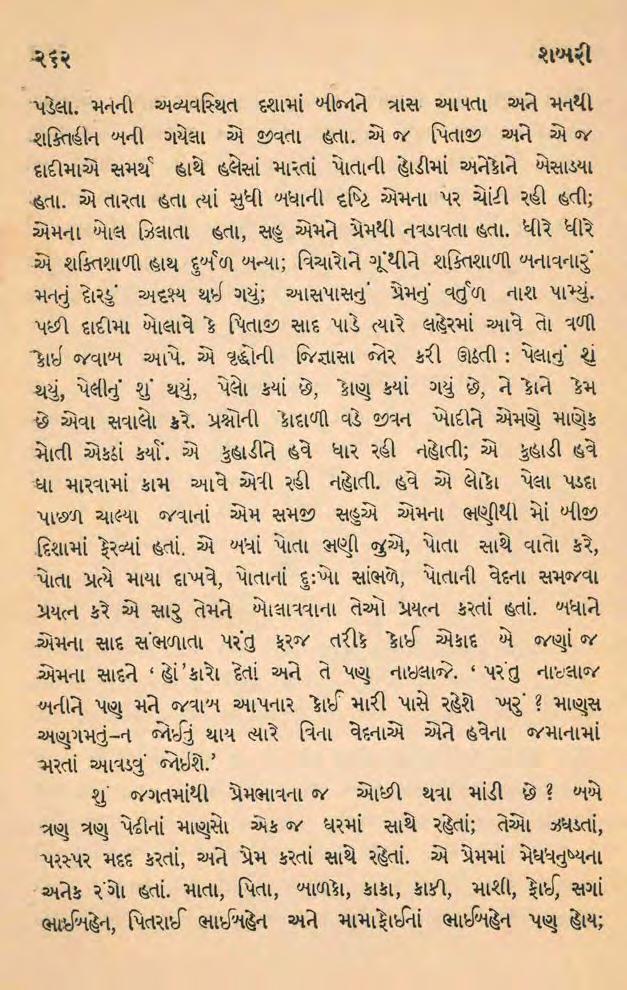 ૨૬૨ શબરી
પડેલા. મનની અવ્યવસ્થિત દશામાં બીજાને ત્રાસ આપતા અને મનથી
શક્તિહીન બની ગયેલા એ જીવતા હતા. એ જ પિતાજી અને એ જ
દાદીમાએ સમર્થ હાથે હલેસાં મારતાં પોતાની હોડીમાં અનેકોને બેસાડયા
હતા. એ તારતા હતા ત્યાં સુધી બધાની દૃષ્ટિ એમના પર ચોંટી રહી હતી;
એમના બોલ ઝિલાતા હતા, સહુ એમને પ્રેમથી નવડાવતા હતા. ધીરે ધીરે
એ શક્તિશાળી હાથ દુર્બળ બન્યા; વિચારોને ગૂંથીને શક્તિશાળી બનાવનારું
મનનું દોરડું અદશ્ય થઈ ગયું; આસપાસનું પ્રેમનું વર્તુળ નાશ પામ્યું.
પછી દાદીમા બોલાવે કે પિતાજી સાદ પાડે ત્યારે લહેરમાં આવે તો વળી
કોઈ જવાબ આપે. એ વૃદ્ધોની જિજ્ઞાસા જોર કરી ઊઠતી : પેલાનું શું
થયું, પેલીનું શું થયું, પેલો કયાં છે, કોણ કયાં ગયું છે, ને કોને કેમ
છે એવા સવાલો કરે. પ્રશ્નોની કોદાળી વડે જીવન ખોદીને એમણે માણેક
મોતી એકઠાં કર્યાં. એ કુહાડીને હવે ધાર રહી નહોતી; એ કુહાડી હવે
ઘા મારવામાં કામ આવે એવી રહી નહોતી. હવે એ લોકો પેલા પડદા
પાછળ ચાલ્યા જવાનાં એમ સમજી સહુએ એમના ભણીથી મોં બીજી
દિશામાં ફેરવ્યાં હતાં. એ બધાં પોતા ભણી જુએ, પોતા સાથે વાતો કરે,
પોતા પ્રત્યે માયા દાખવે, પોતાનાં દુઃખો સાંભળે, પોતાની વેદના સમજવા
પ્રયત્ન કરે એ સારુ તેમને બોલાવવાના તેઓ પ્રયત્ન કરતાં હતાં. બધાને
એમના સાદ સંભળાતા પરંતુ ફરજ તરીકે કોઈ એકાદ બે જણાં જ
એમના સાદને ‘ હોં’કારો દેતાં અને તે પણ નાઇલાજે. ‘ પરંતુ નાઇલાજ
બનીને પણ મને જવાબ આપનાર કોઈ મારી પાસે રહેશે ખરું ? માણુસ
અણગમતું–ન જોઈતું થાય ત્યારે વિના વેદનાએ એને હવેના જમાનામાં
મરતાં આવડવું જોઇશે.’
શું જગતમાંથી પ્રેમભાવના જ ઓછી થવા માંડી છે ? બબે
ત્રણ ત્રણ પેઢીનાં માણસો એક જ ઘરમાં સાથે રહેતાં; તેઓ ઝઘડતાં,
પરસ્પર મદદ કરતાં, અને પ્રેમ કરતાં સાથે રહેતાં. એ પ્રેમમાં મેઘધનુષ્યના
અનેક રંગો હતાં. માતા, પિતા, બાળકો, કાકા, કાકી, માશી, ફોઈ, સગાં
ભાઈબહેન, પિતરાઈ ભાઈબહેન અને મામાફોઈનાં ભાઈબહેન પણ હોય;